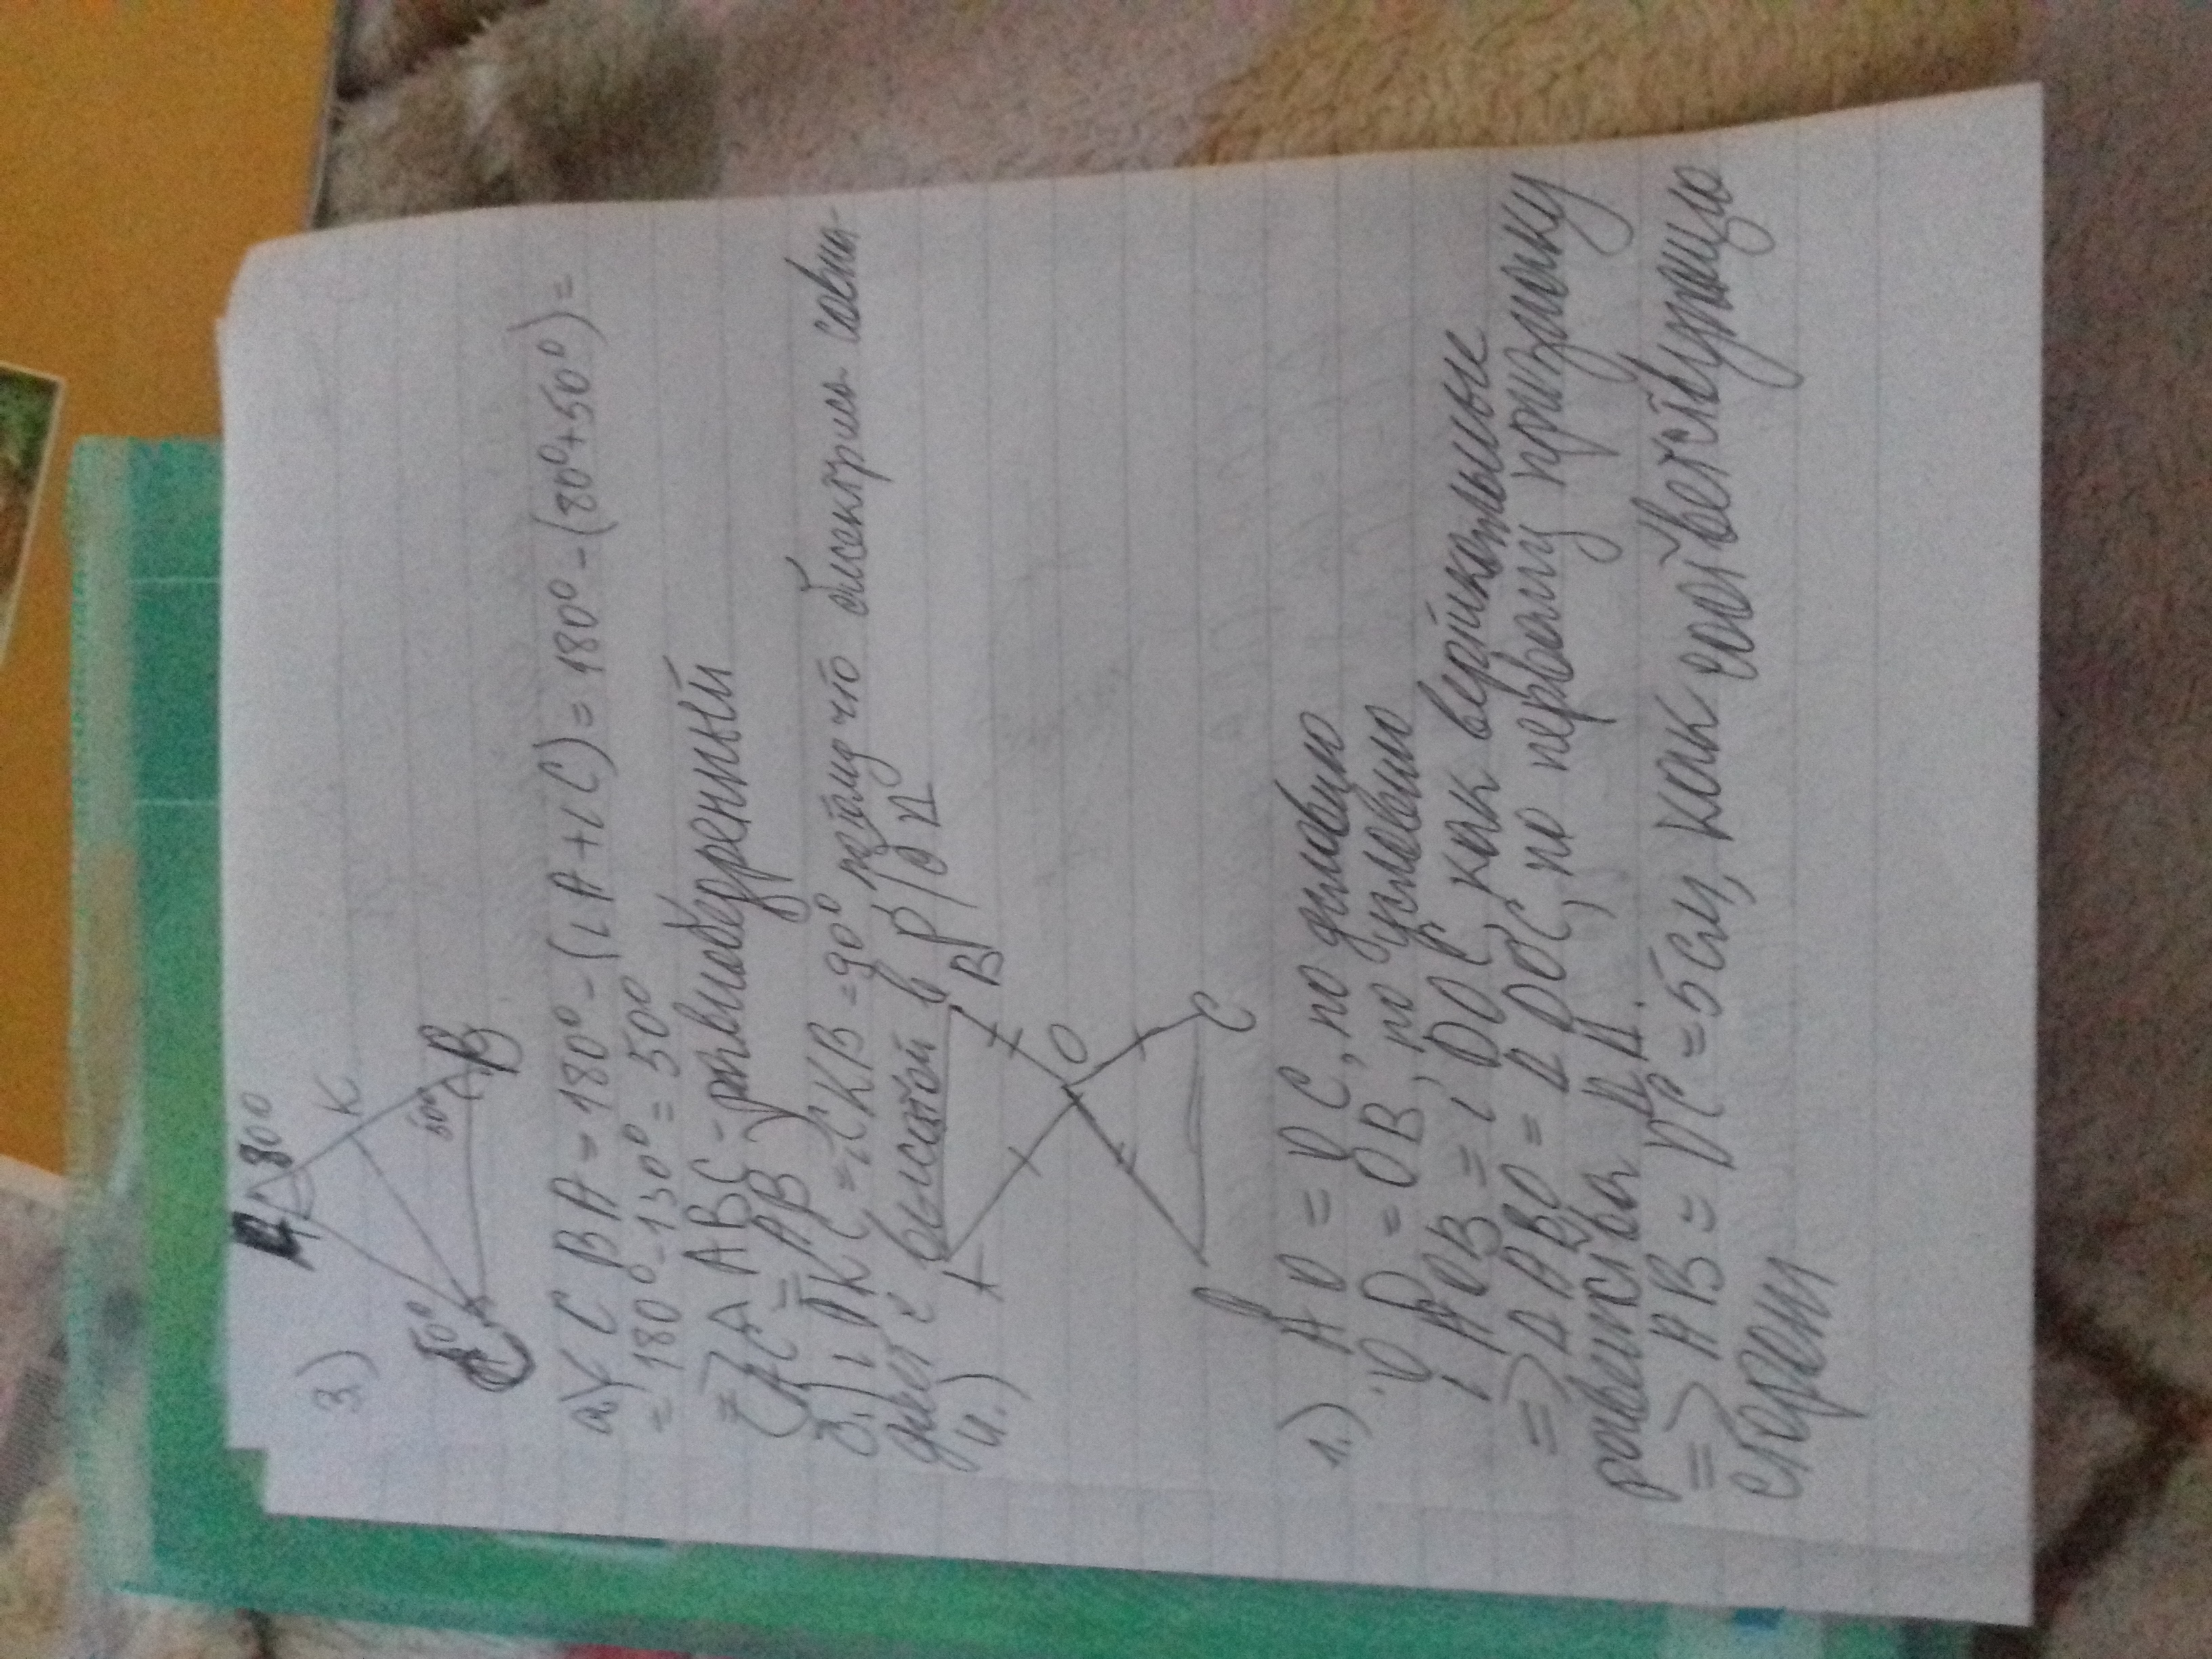 3.)
A 80°
K
50°
50° B
а) ∠CBA = 180° - (∠A + ∠C) = 180° - (80° + 50°) =
= 180° - 130° = 50°
=> Δ ABC - равнобедренный
(AC = AB)
в.) KC = ∠CKB = 90° потому что биссектриса совпа-
дает с высотой в р/б
4.)
A B
O
D C
1.) AO = OC, по условию
OD = OB, по условию
∠AOB = ∠DOC, как вертикальные
=> Δ ABO = Δ DOC, по первому признаку
равенства Δ Δ.
=> AB = DC = 5см, как соответствующие
стороны